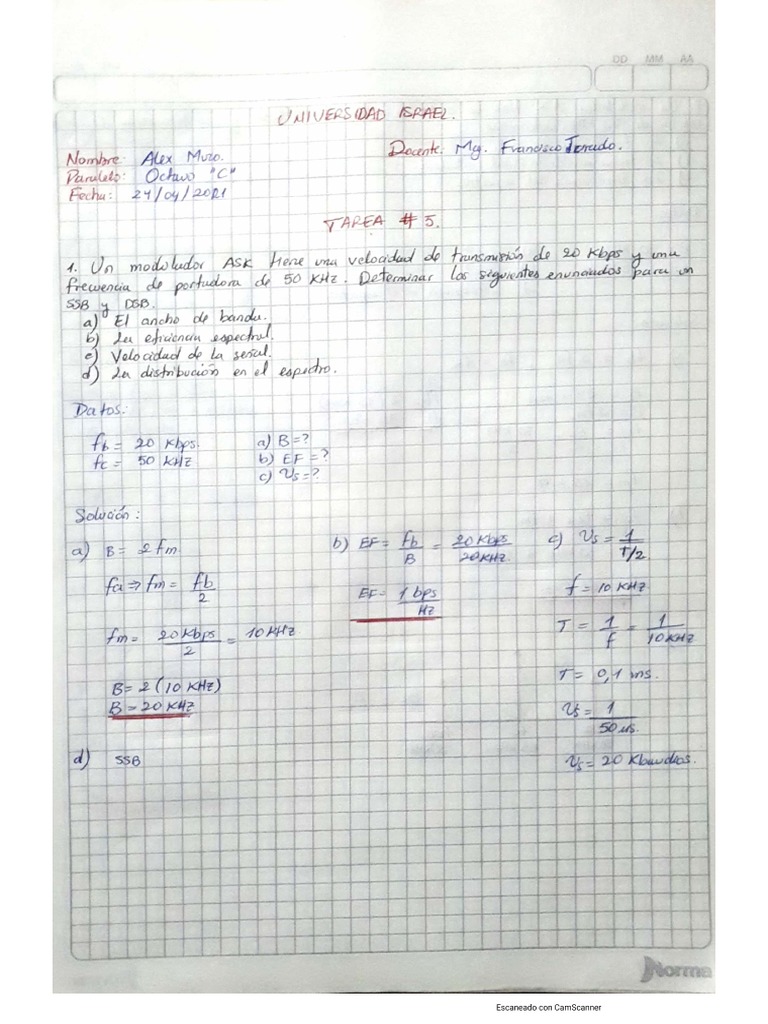 DD MM AA
UNIVERSIDAD ISRAEL.
Nombre: Alex Muzo. Docente. Mg. Francisco Jurado.
Paralelo: Octavo "C"
Fecha: 24/04/2021
TAREA # 5.
1. Un modulador ASK tiene una velocidad de transmisión de 20 Kbps y una
frecuencia de portadora de 50 KHz. Determinar los siguientes enunciados para un
SSB y DSB.
a) El ancho de banda.
b) La eficiencia espectral.
c) Velocidad de la señal.
d) La distribución en el espectro.
Datos:
fb = 20 Kbps. a) B = ?
fc = 50 KHz b) EF = ?
c) Vs = ?
Solución:
a) B = 2 fm.
fa => fm = fb/2
fm = 20 Kbps/2 = 10 KHz
B = 2 (10 KHz)
B = 20 KHz
b) EF = fb/B = 20 Kbps/20 KHz.
EF = 1 bps/Hz
c) Vs = 1/T/2
f = 10 KHz.
T = 1/f = 1/10 KHz
T = 0,1 ms.
Vs = 1/50 us.
Vs = 20 Kbaudios.
d) SSB
Norma
Escaneado con CamScanner